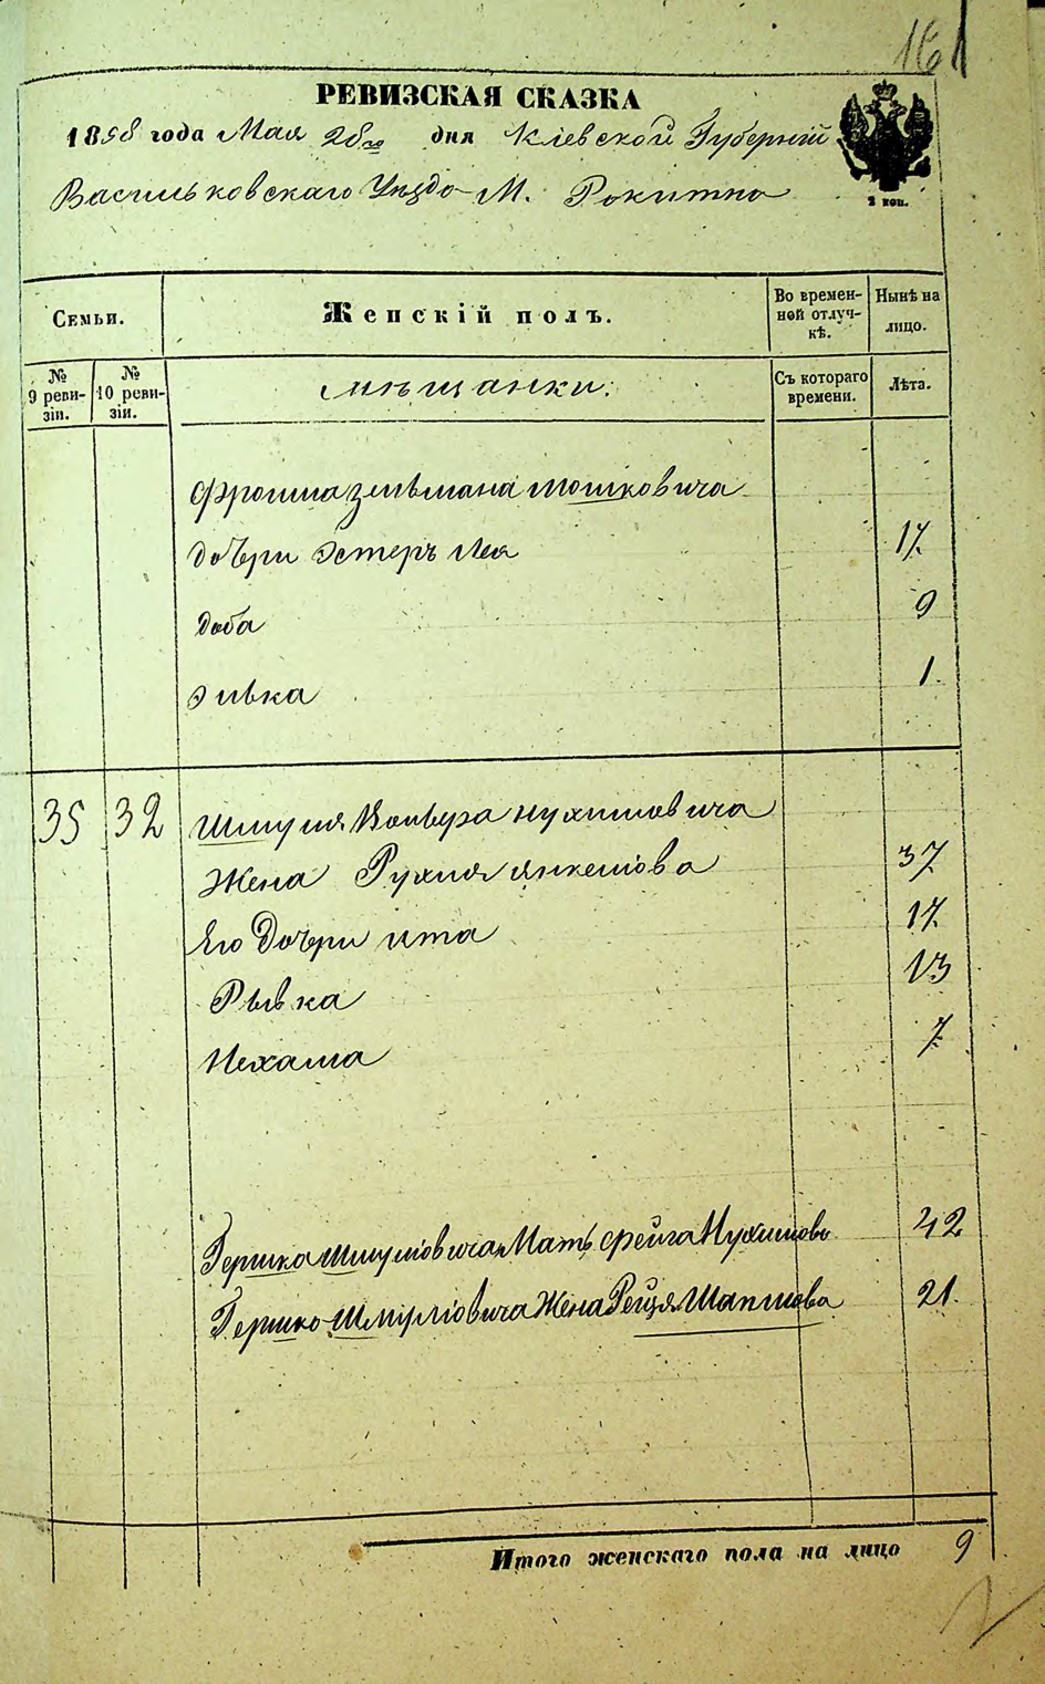 161
РЕВИЗСКАЯ СКАЗКА
1858 года Мая 28го дня Кіевской Губерніи
Васильковскаго Уѣзда М. Рокитна
2 коп.
Семьи.
Женскій полъ.
Во времен-
ной отлуч-
кѣ.
Нынѣ на
лицо.
№
9 реви-
зіи.
№
10 реви-
зіи.
мѣщанки.
Съ котораго
времени.
Лѣта.
Фроима Зельмана Мошковича
дочери Эстеръ Лея 17
доба 9
Э 1
35 32 Шмуля Нухимовича
Жена Рухля Янкелiова 37
Его Дочери ита 17
Рывка 13
Нехама 7
Гершка Шмулiовича Мать фейга Нухимова 42
Гершко Шмулiовича Жена Рейзя Шапшова 21
Итого женскаго пола на лицо 9